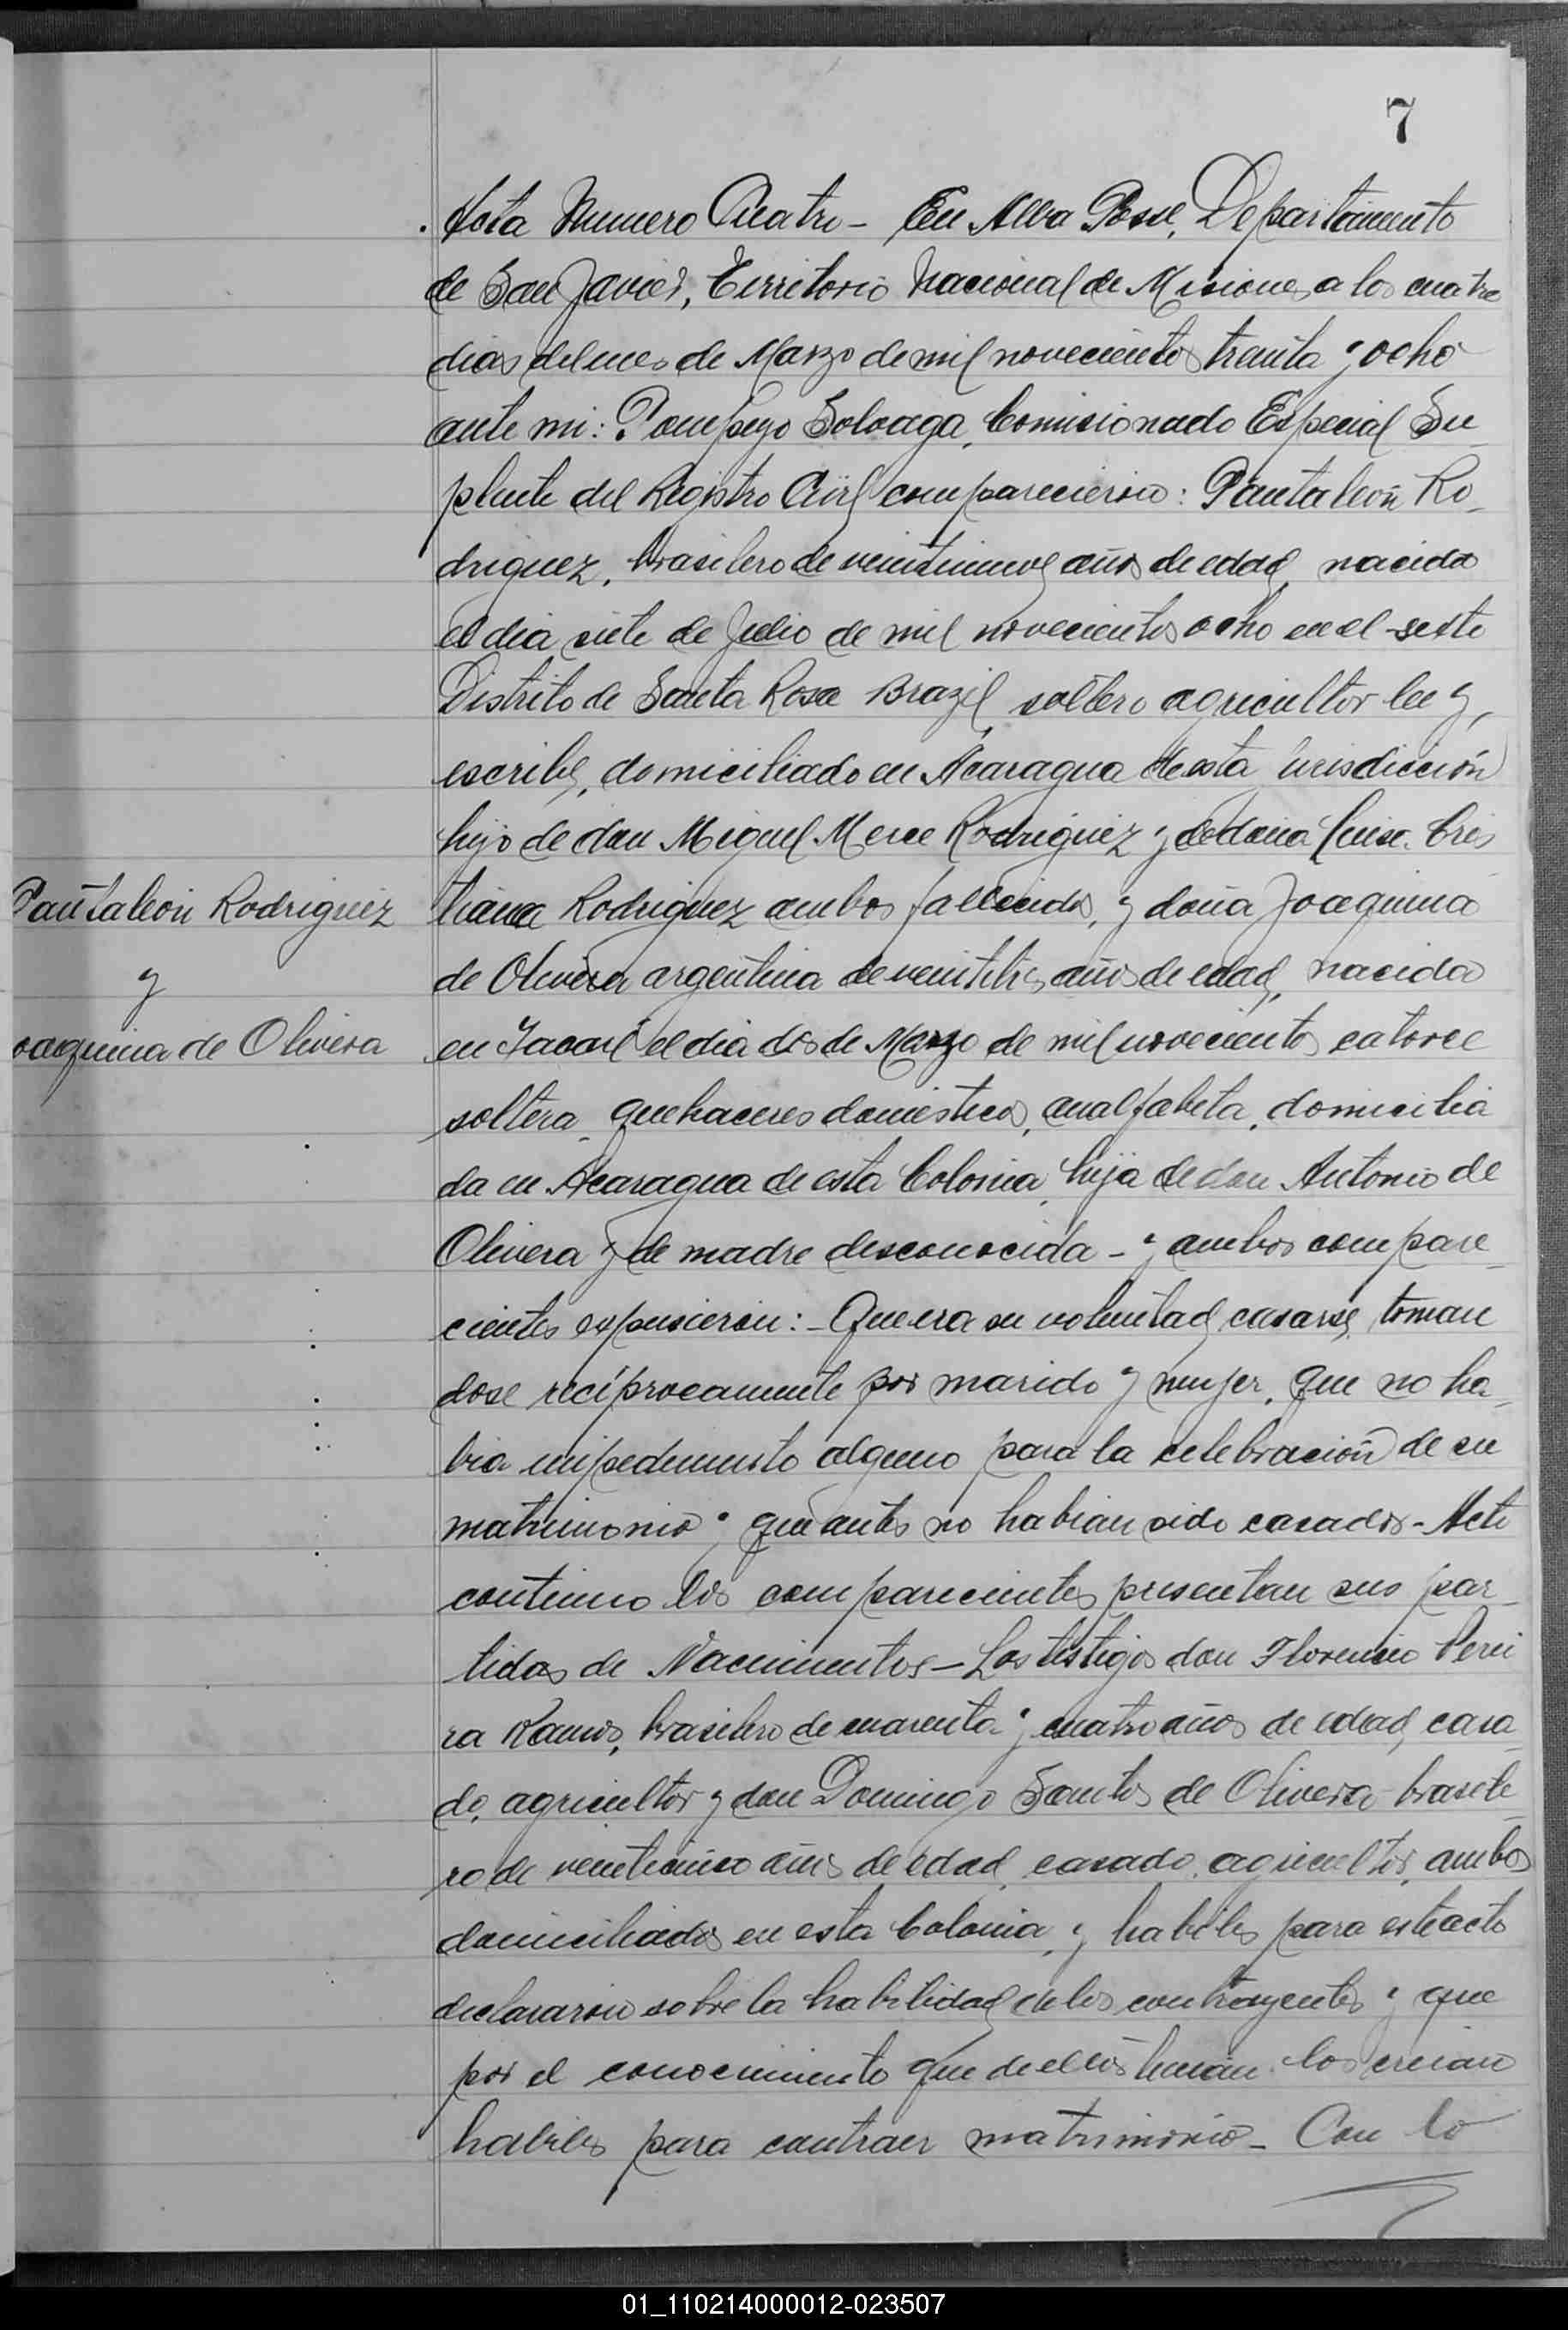 7
Acta Numero Cuatro - En Alba Posse, Departamento
de San Javier, Territorio Nacional de Misiones a los cuatro
dias del mes de Marzo de mil novecientos treinta y ocho
ante mi: Pompeyo Soloaga, Comisionado Especial Su_
plente del Registro Civil comparecieron: Pantaleón Ro_
driguez, brasilero de veintinueve años de edad, nacido
el dia siete de Julio de mil novecientos ocho en el sesto
Distrito de Santa Rosa Brazil, soltero agricultor lee y
escribe, domiciliado en Acaragua de esta jurisdicción
hijo de don Miguel Rodriguez y de doña Cris
Pantaleón Rodriguez
y
oaquina de Olivera
tiana Rodriguez ambos fallecidos, y doña Joaquina
de Olivera argentina de veintitres años de edad, nacida
en el dia dos de Marzo de mil novecientos catorce
soltera, quehaceres domésticos, analfabeta, domicilia
da en Acaragua de esta Colonia, hija de don Antonio de
Olivera y de madre desconocida - y ambos compare_
cientes expusieron: - Que era su voluntad casarse, toman
dose recíprocamente por marido y mujer, que no ha_
bia impedimento alguno para la celebración de su
matrimonio y que antes no habian sido casados - Acto
continuo los comparecientes presentan sus par_
tidas de Nacimientos - Los testigos don Florencio Perei
ra Ramos, brasilero de cuarenta y cuatro años de edad, casa_
do, agricultor y don Domingo Santos de Olivera brasile_
ro de veinticinco años de edad, casado, agricultor, ambos
domiciliados en esta Colonia, y habiles para este acto
declararon sobre la habilidad de los contrayentes y que
por el conocimiento que de ellos tenian los creian
habiles para contraer matrimonio - Con lo
01_110214000012-023507